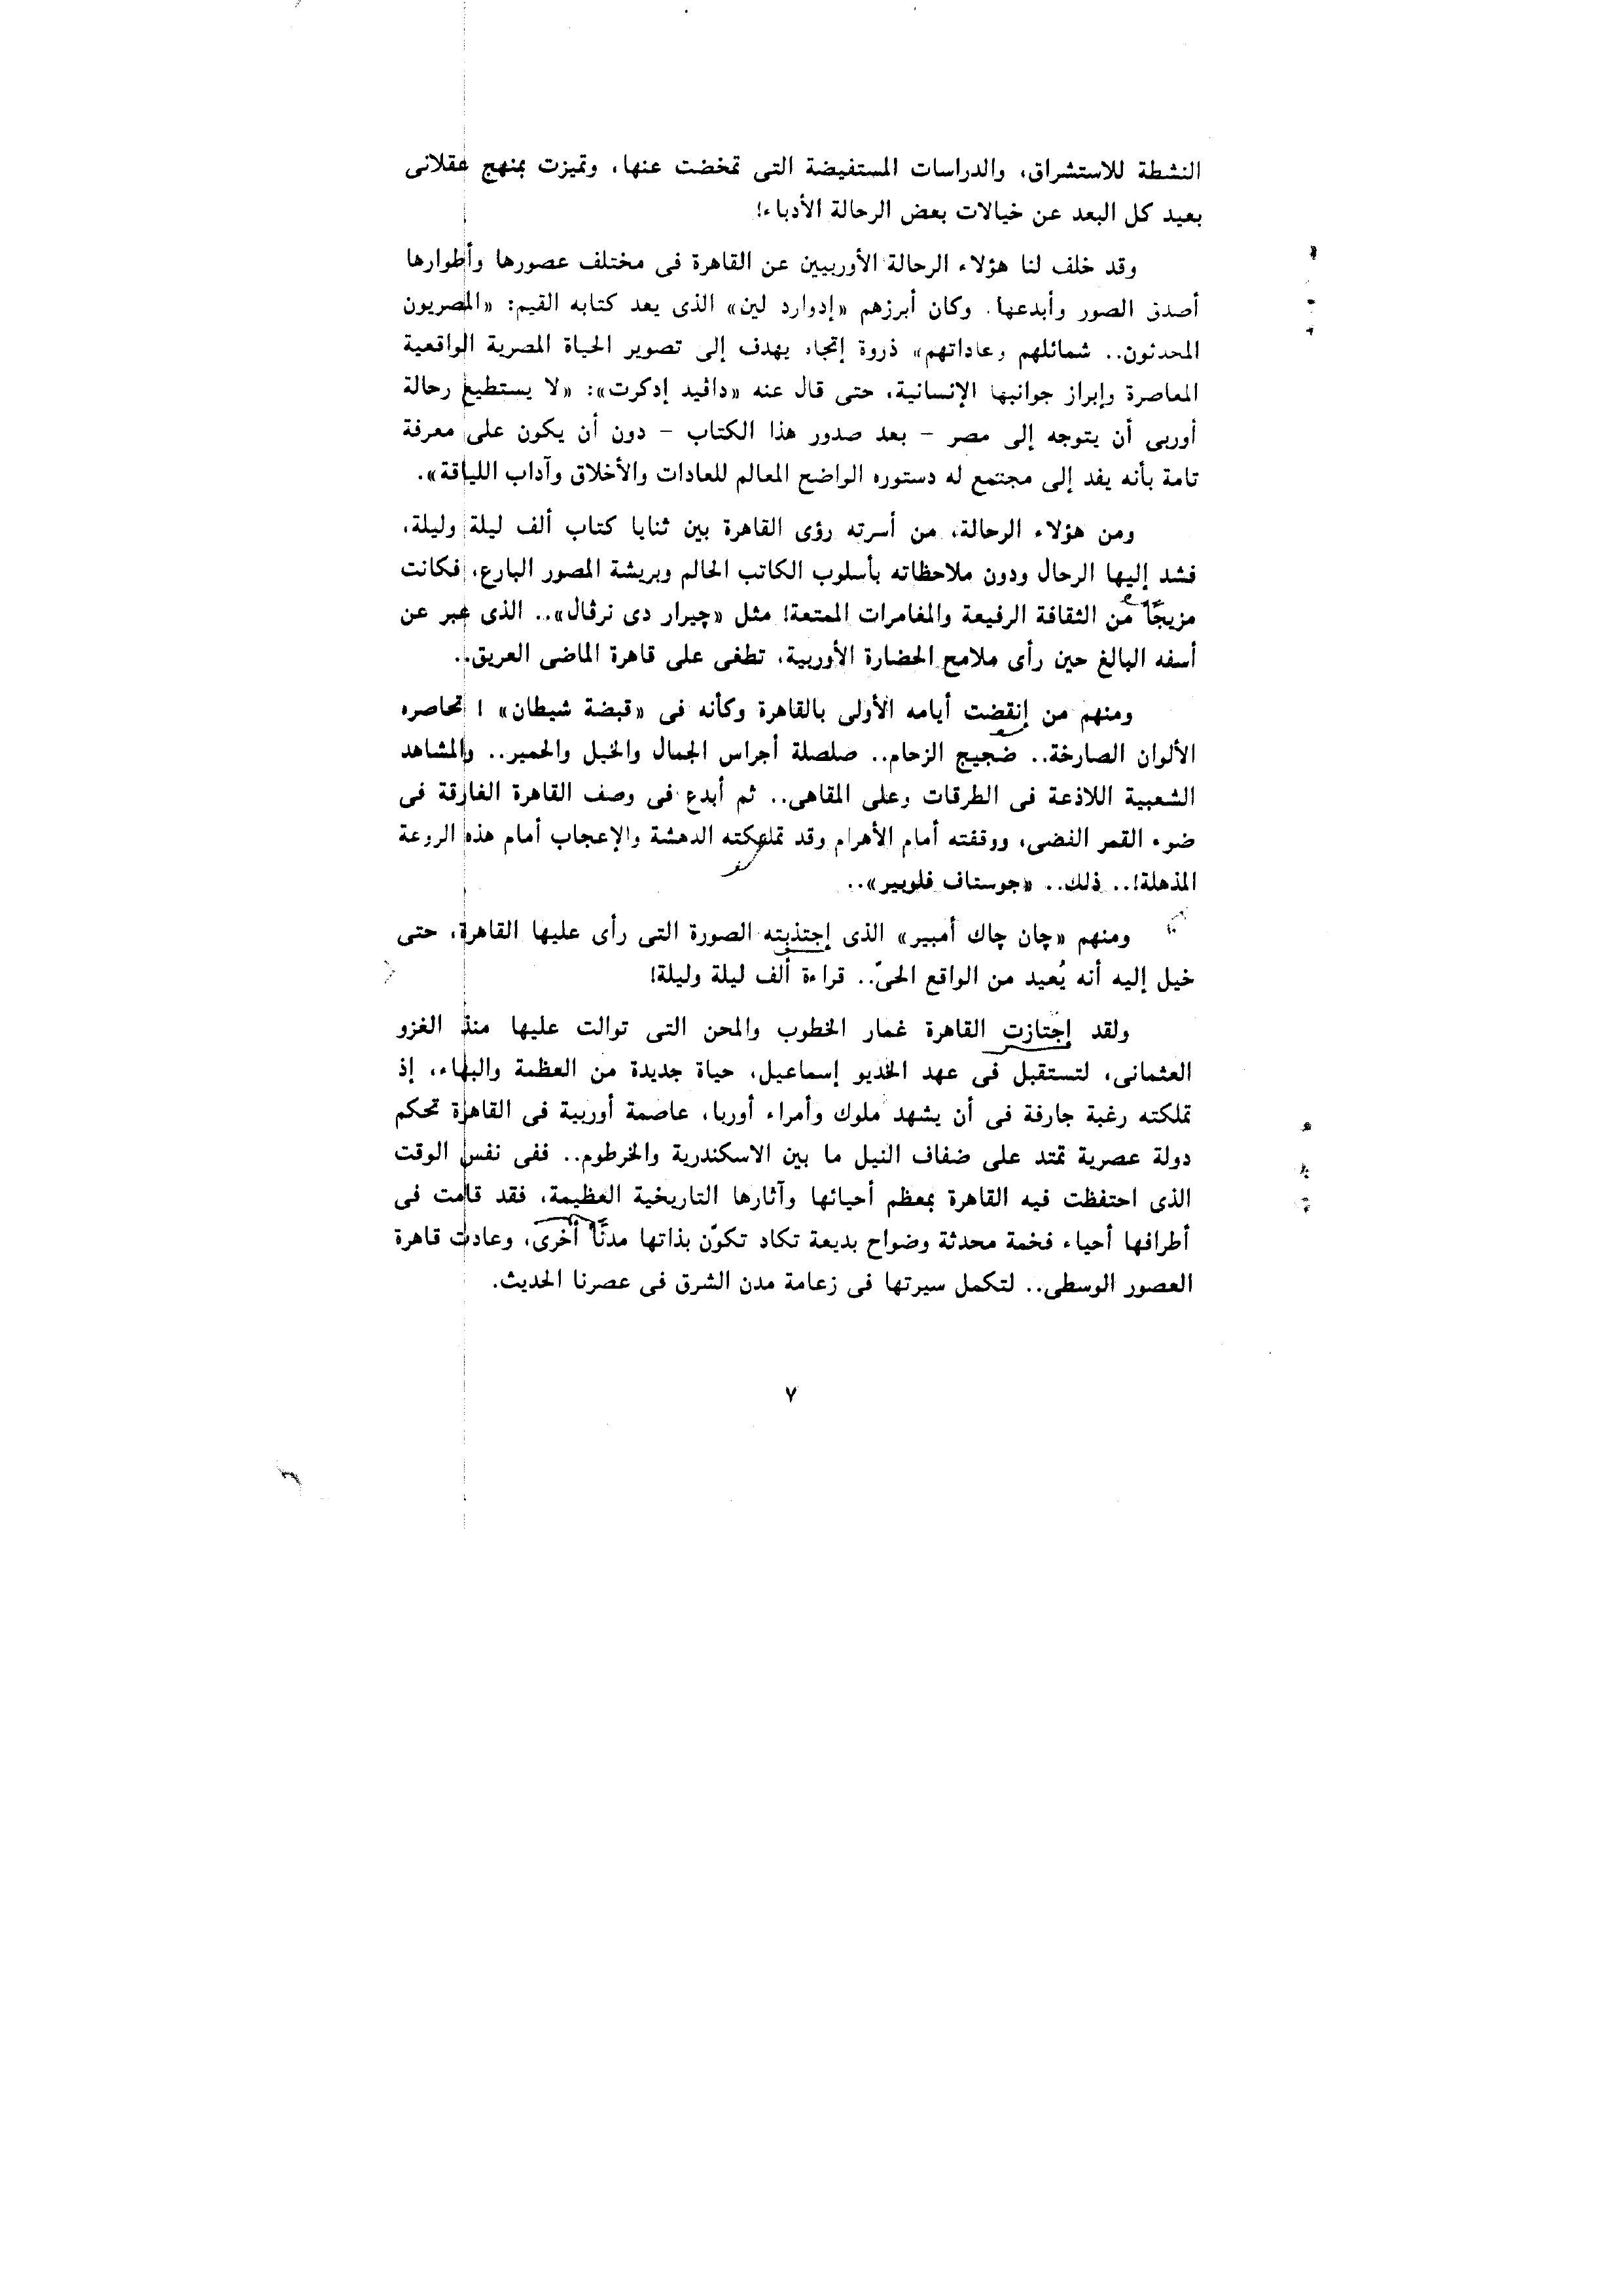 النشطة للاستشراق، والدراسات المستفيضة التى تمخضت عنها، وتميزت بمنهج عقلانى
بعيد كل البعد عن خيالات بعض الرحالة الأدباء!
وقد خلف لنا هؤلاء الرحالة الأوربيين عن القاهرة فى مختلف عصورها وأطوارها
أصدق الصور وأبدعها. وكان أبرزهم «إدوارد لين» الذى يعد كتابه القيم: «المصريون
المحدثون.. شمائلهم وعاداتهم» ذروة إتجاه يهدف إلى تصوير الحياة المصرية الواقعية
المعاصرة وإبراز جوانبها الإنسانية، حتى قال عنه «داڤيد إدكرت»: «لا يستطيع رحالة
أوربى أن يتوجه إلى مصر – بعد صدور هذا الكتاب – دون أن يكون على معرفة
تامة بأنه يفد إلى مجتمع له دستوره الواضح المعالم للعادات والأخلاق وآداب اللياقة».
ومن هؤلاء الرحالة، من أسرته رؤى القاهرة بين ثنايا كتاب ألف ليلة وليلة،
فشد إليها الرحال ودون ملاحظاته بأسلوب الكاتب الحالم وبريشة المصور البارع، فكانت
مزيجًا من الثقافة الرفيعة والمغامرات الممتعة! مثل «چيرار دى نرڤال».. الذى عبر عن
أسفه البالغ حين رأى ملامح الحضارة الأوربية، تطغى على قاهرة الماضى العريق..
ومنهم من إنقضت أيامه الأولى بالقاهرة وكأنه فى «قبضة شيطان» ! تحاصره
الألوان الصارخة.. ضجيج الزحام.. صلصلة أجراس الجمال والخيل والحمير.. والمشاهد
الشعبية اللاذعة فى الطرقات وعلى المقاهى.. ثم أبدع فى وصف القاهرة الغارقة فى
ضوء القمر الفضى، ووقفته أمام الأهرام وقد تملكته الدهشة والإعجاب أمام هذه الروعة
المذهلة!.. ذلك.. «جوستاف فلوبير»..
ومنهم «چان چاك أمبير» الذى إجتذبته الصورة التى رأى عليها القاهرة، حتى
خيل إليه أنه يُعيد من الواقع الحىّ.. قراءة ألف ليلة وليلة!
ولقد إجتازت القاهرة غمار الخطوب والمحن التى توالت عليها منذ الغزو
العثمانى، لتستقبل فى عهد الخديو إسماعيل، حياة جديدة من العظمة والبهاء، إذ
تملكته رغبة جارفة فى أن يشهد ملوك وأمراء أوربا، عاصمة أوربية فى القاهرة تحكم
دولة عصرية تمتد على ضفاف النيل ما بين الاسكندرية والخرطوم.. ففى نفس الوقت
الذى احتفظت فيه القاهرة بمعظم أحيائها وآثارها التاريخية العظيمة، فقد قامت فى
أطرافها أحياء فخمة محدثة وضواح بديعة تكاد تكوّن بذاتها مدنًا أخرى، وعادت قاهرة
العصور الوسطى.. لتكمل سيرتها فى زعامة مدن الشرق فى عصرنا الحديث.
٧